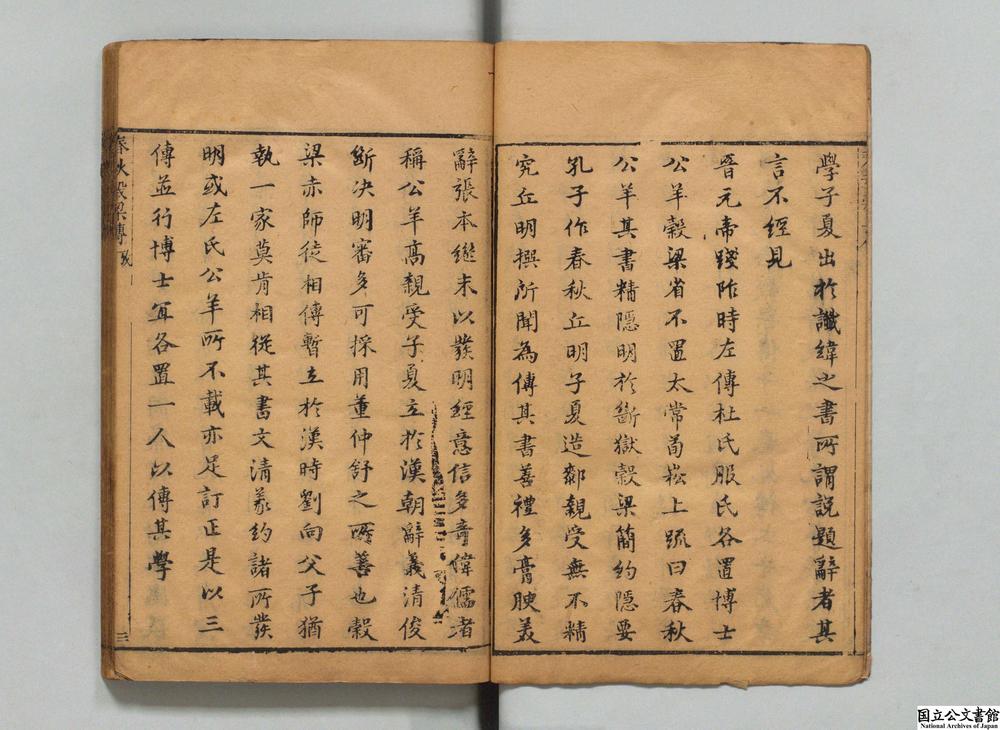 學子夏出於讖緯之書所謂説題辭者其
言不經見
晉元帝踐阼時左傳杜氏服氏各置博士
公羊穀梁省不置太常荀崧上疏曰春秋
公羊其書精隱明於斷獄穀梁簡約隱要
孔子作春秋丘明子夏造䣛親受無不精
究丘明撰所聞為傳其書善禮多膏腴美
辭張本繼末以發明經意信多奇偉儒者
稱公羊高親受子夏立於漢朝辭義清俊
斷决明審多可採用董仲舒之所善也穀
梁赤師徒相傳暫立於漢時劉向父子猶
執一家莫肯相從其書文清義約諸所發
明或左氏公羊所不載亦足訂正是以三
傳並行博士宜各置一人以傳其學
春秋穀梁傳
三
国立公文書館
National Archives of Japan